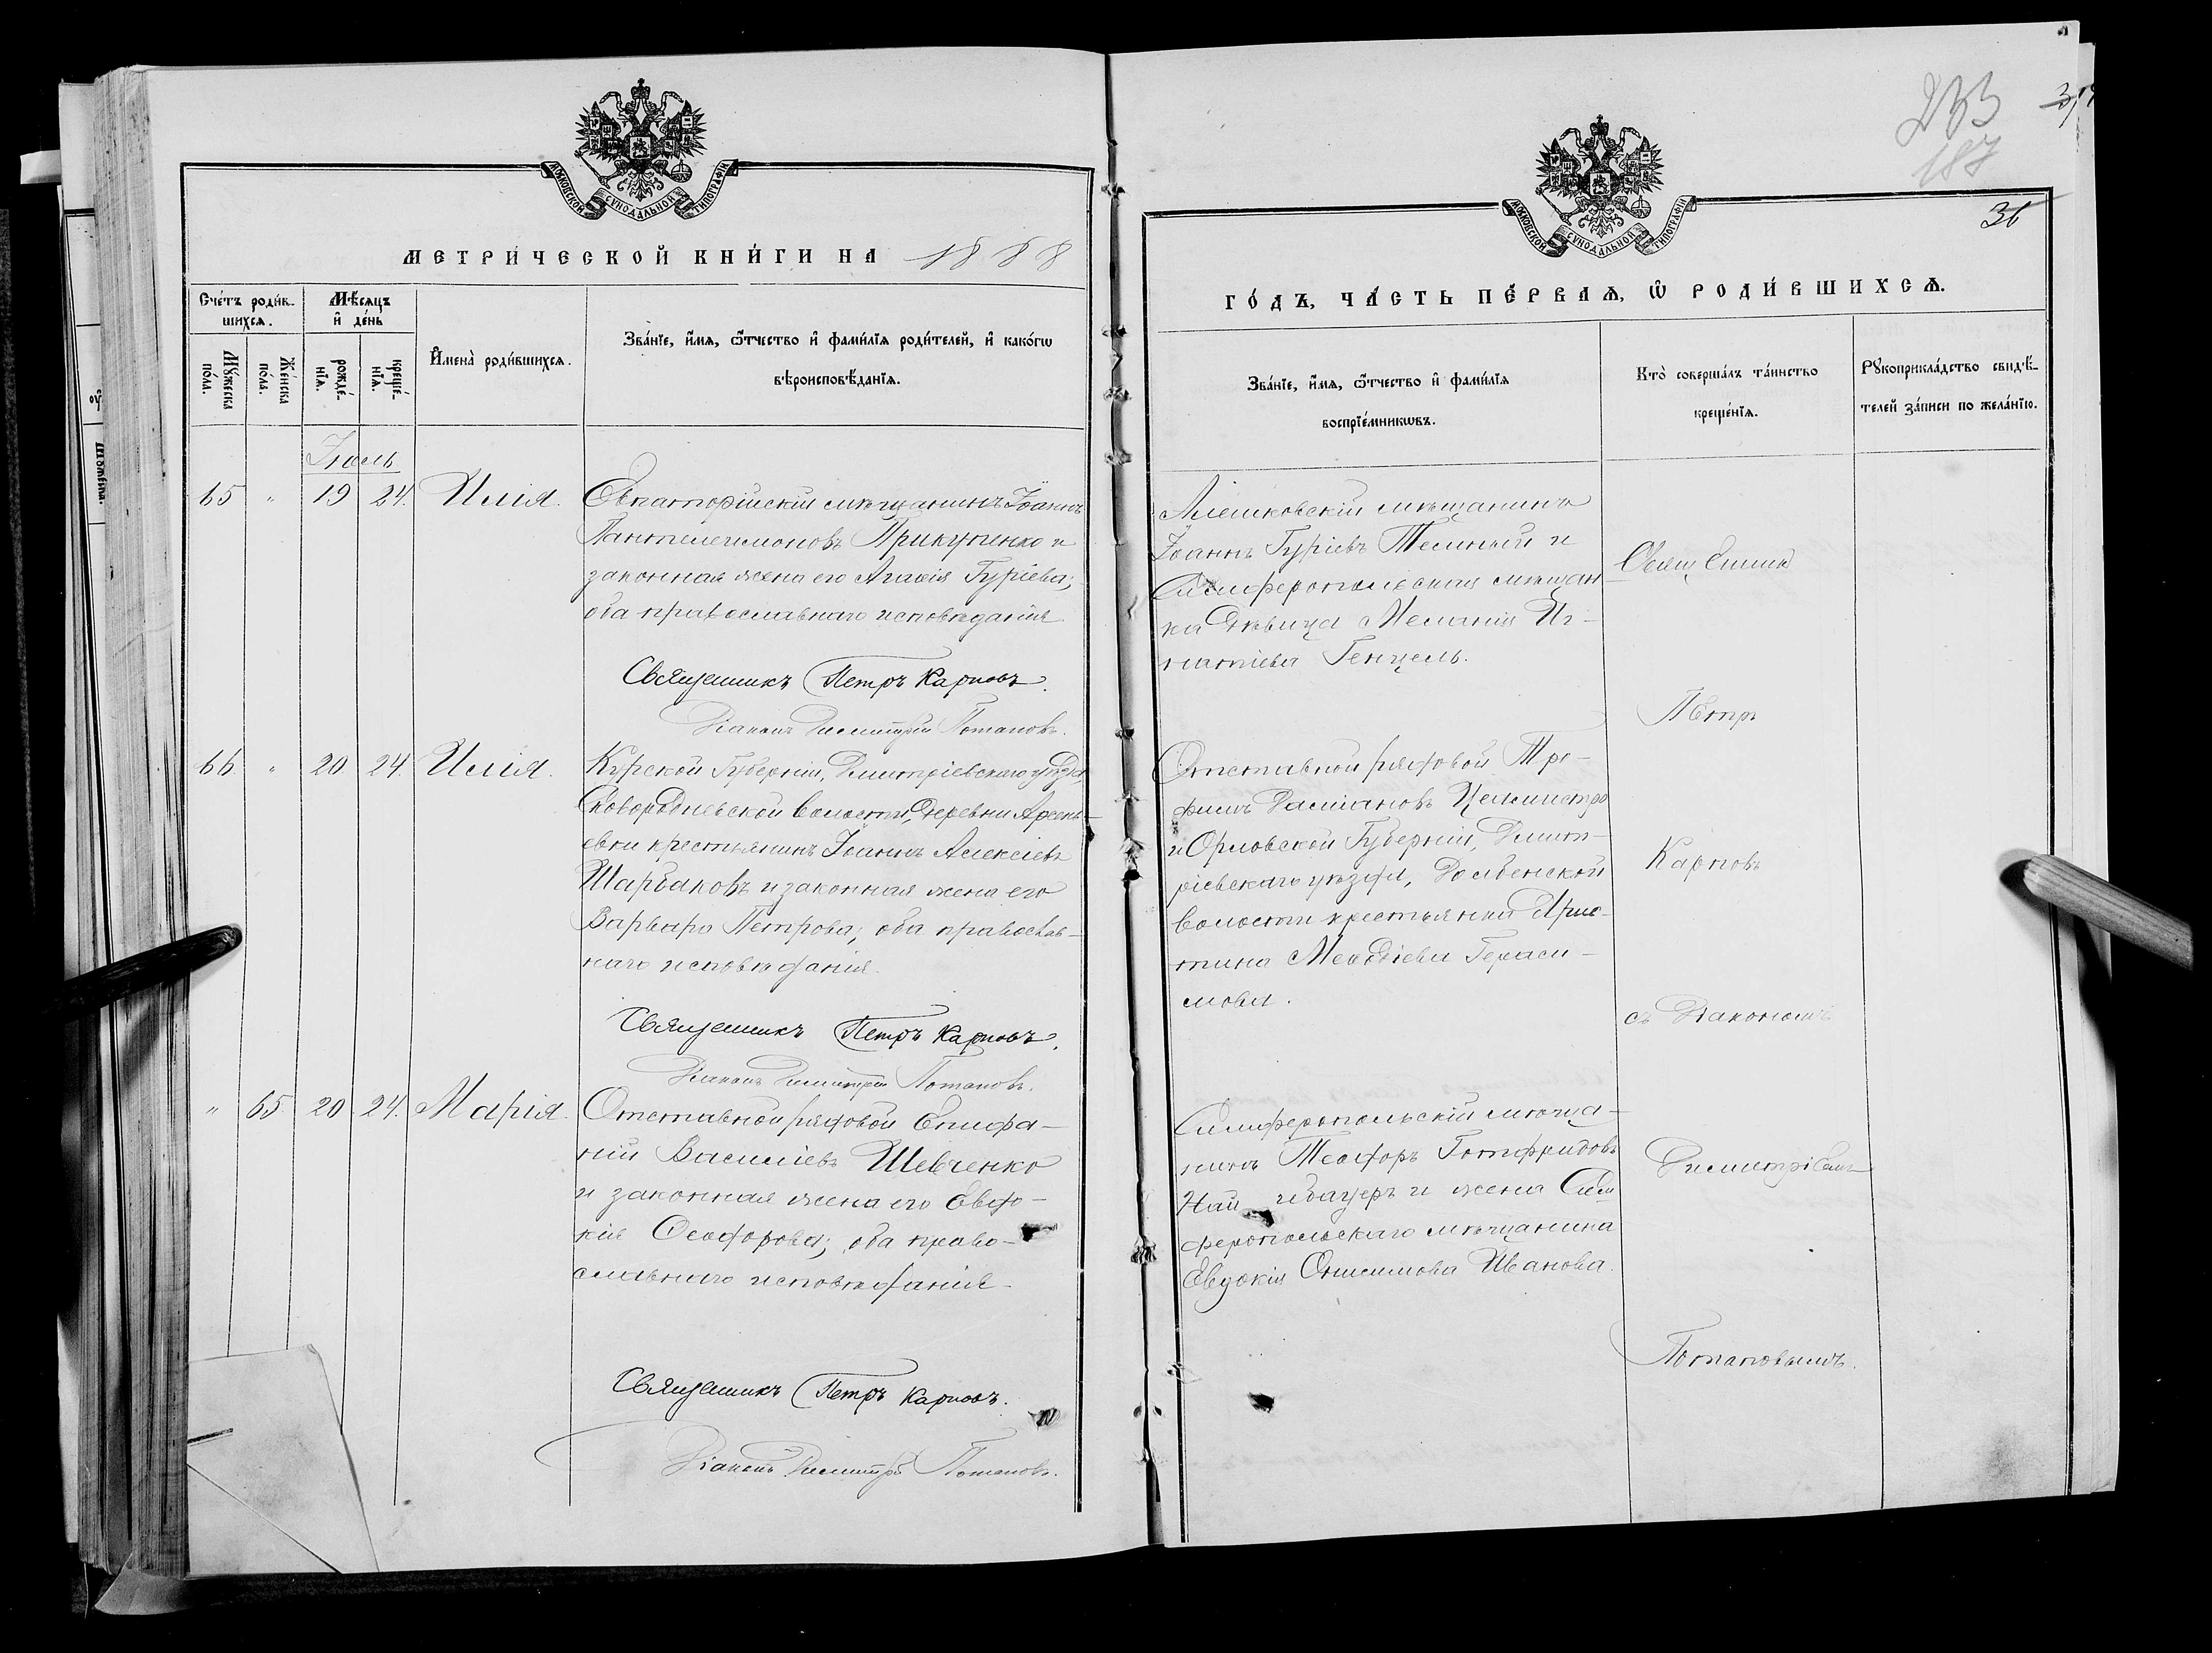 МОСКОВСКОЙ СУНОДАЛЬНОЙ ТИПОГРАФІИ
МЕТРИ́ЧЕСКОЙ КНИ́ГИ НА 1888
Сче́тъ роди́в-
шихся.
Мѣ́сяцъ
и҆ де́нь
Мꙋ́жеска
по́ла.
Же́нска
по́ла.
рожде́-
нїѧ.
креще́-
нїѧ.
И҆мена̀ роди́вшихсѧ.
Зва́нїе, и҆́мѧ, ѻ҆́тчество и҆ фами́лїѧ роди́телей, и҆ како́гѡ
вѣроисповѣ́данїѧ.
Іюль
65 " 19 24. Илія.
Евпаторійскій мѣщанинъ Іоаннъ
Пантелеимоновъ Прикупенко и
законная жена его Агаѳія Гуріева;
оба православнаго исповѣданія
Священникъ Петръ Карповъ.
Діаконъ Димитрій Потаповъ.
66 " 20 24. Илія.
Курской Губерніи, Дмитріевскаго уѣзда,
Сковородневской волости, деревни Арсень-
евки крестьянинъ Іоаннъ Алексіевъ
Шарбаковъ и законная жена его
Варвара Петрова; оба православ-
наго исповѣданія.
Священникъ Петръ Карповъ.
Діаконъ Димитрій Потаповъ.
" 65 20 24. Марія.
Отставной рядовой Епифа-
ній Василіевъ Шевченко
и законная жена его Евдо-
кія Ѳеодорова; оба право-
славнаго исповѣданія
Священникъ Петръ Карповъ.
Діаконъ Димитрій Потаповъ.
233
187
36
МОСКОВСКОЙ СУНОДАЛЬНОЙ ТИПОГРАФІИ
ГО́ДЪ, ЧА́СТЬ ПЕ́РВАѦ, Ѡ҆ РОДИ́ВШИХСѦ.
Зва́нїе, и҆́мѧ, ѻ҆́тчество и҆ фами́лїѧ
воспрїе́мникѡвъ.
Кто̀ соверша́лъ та́инство
креще́нїѧ.
Рꙋкоприкла́дство свидѣ́-
телей за́писи по жела́нїю.
Алешковскій мѣщанинъ
Іоаннъ Гуріевъ Темный и
Симферопольская мѣщан
ка дѣвица Меланія Иг-
натіева Генцель.
Свящ
Петръ
Карповъ
съ Діакономъ
Димитріемъ
Потаповымъ.
Отставной рядовой Тро-
фимъ Даміановъ
и Орловской Губерніи, Дмит-
ріевскаго уѣзда,
волости крестьянка Хрис-
тина Меѳодіева Гераси-
мова.
Симферопольскій мѣща-
нинъ Теодоръ Готфридовъ
Най и жена Сим
феропольскаго мѣщанина
Евдокія Онисимова Иванова.